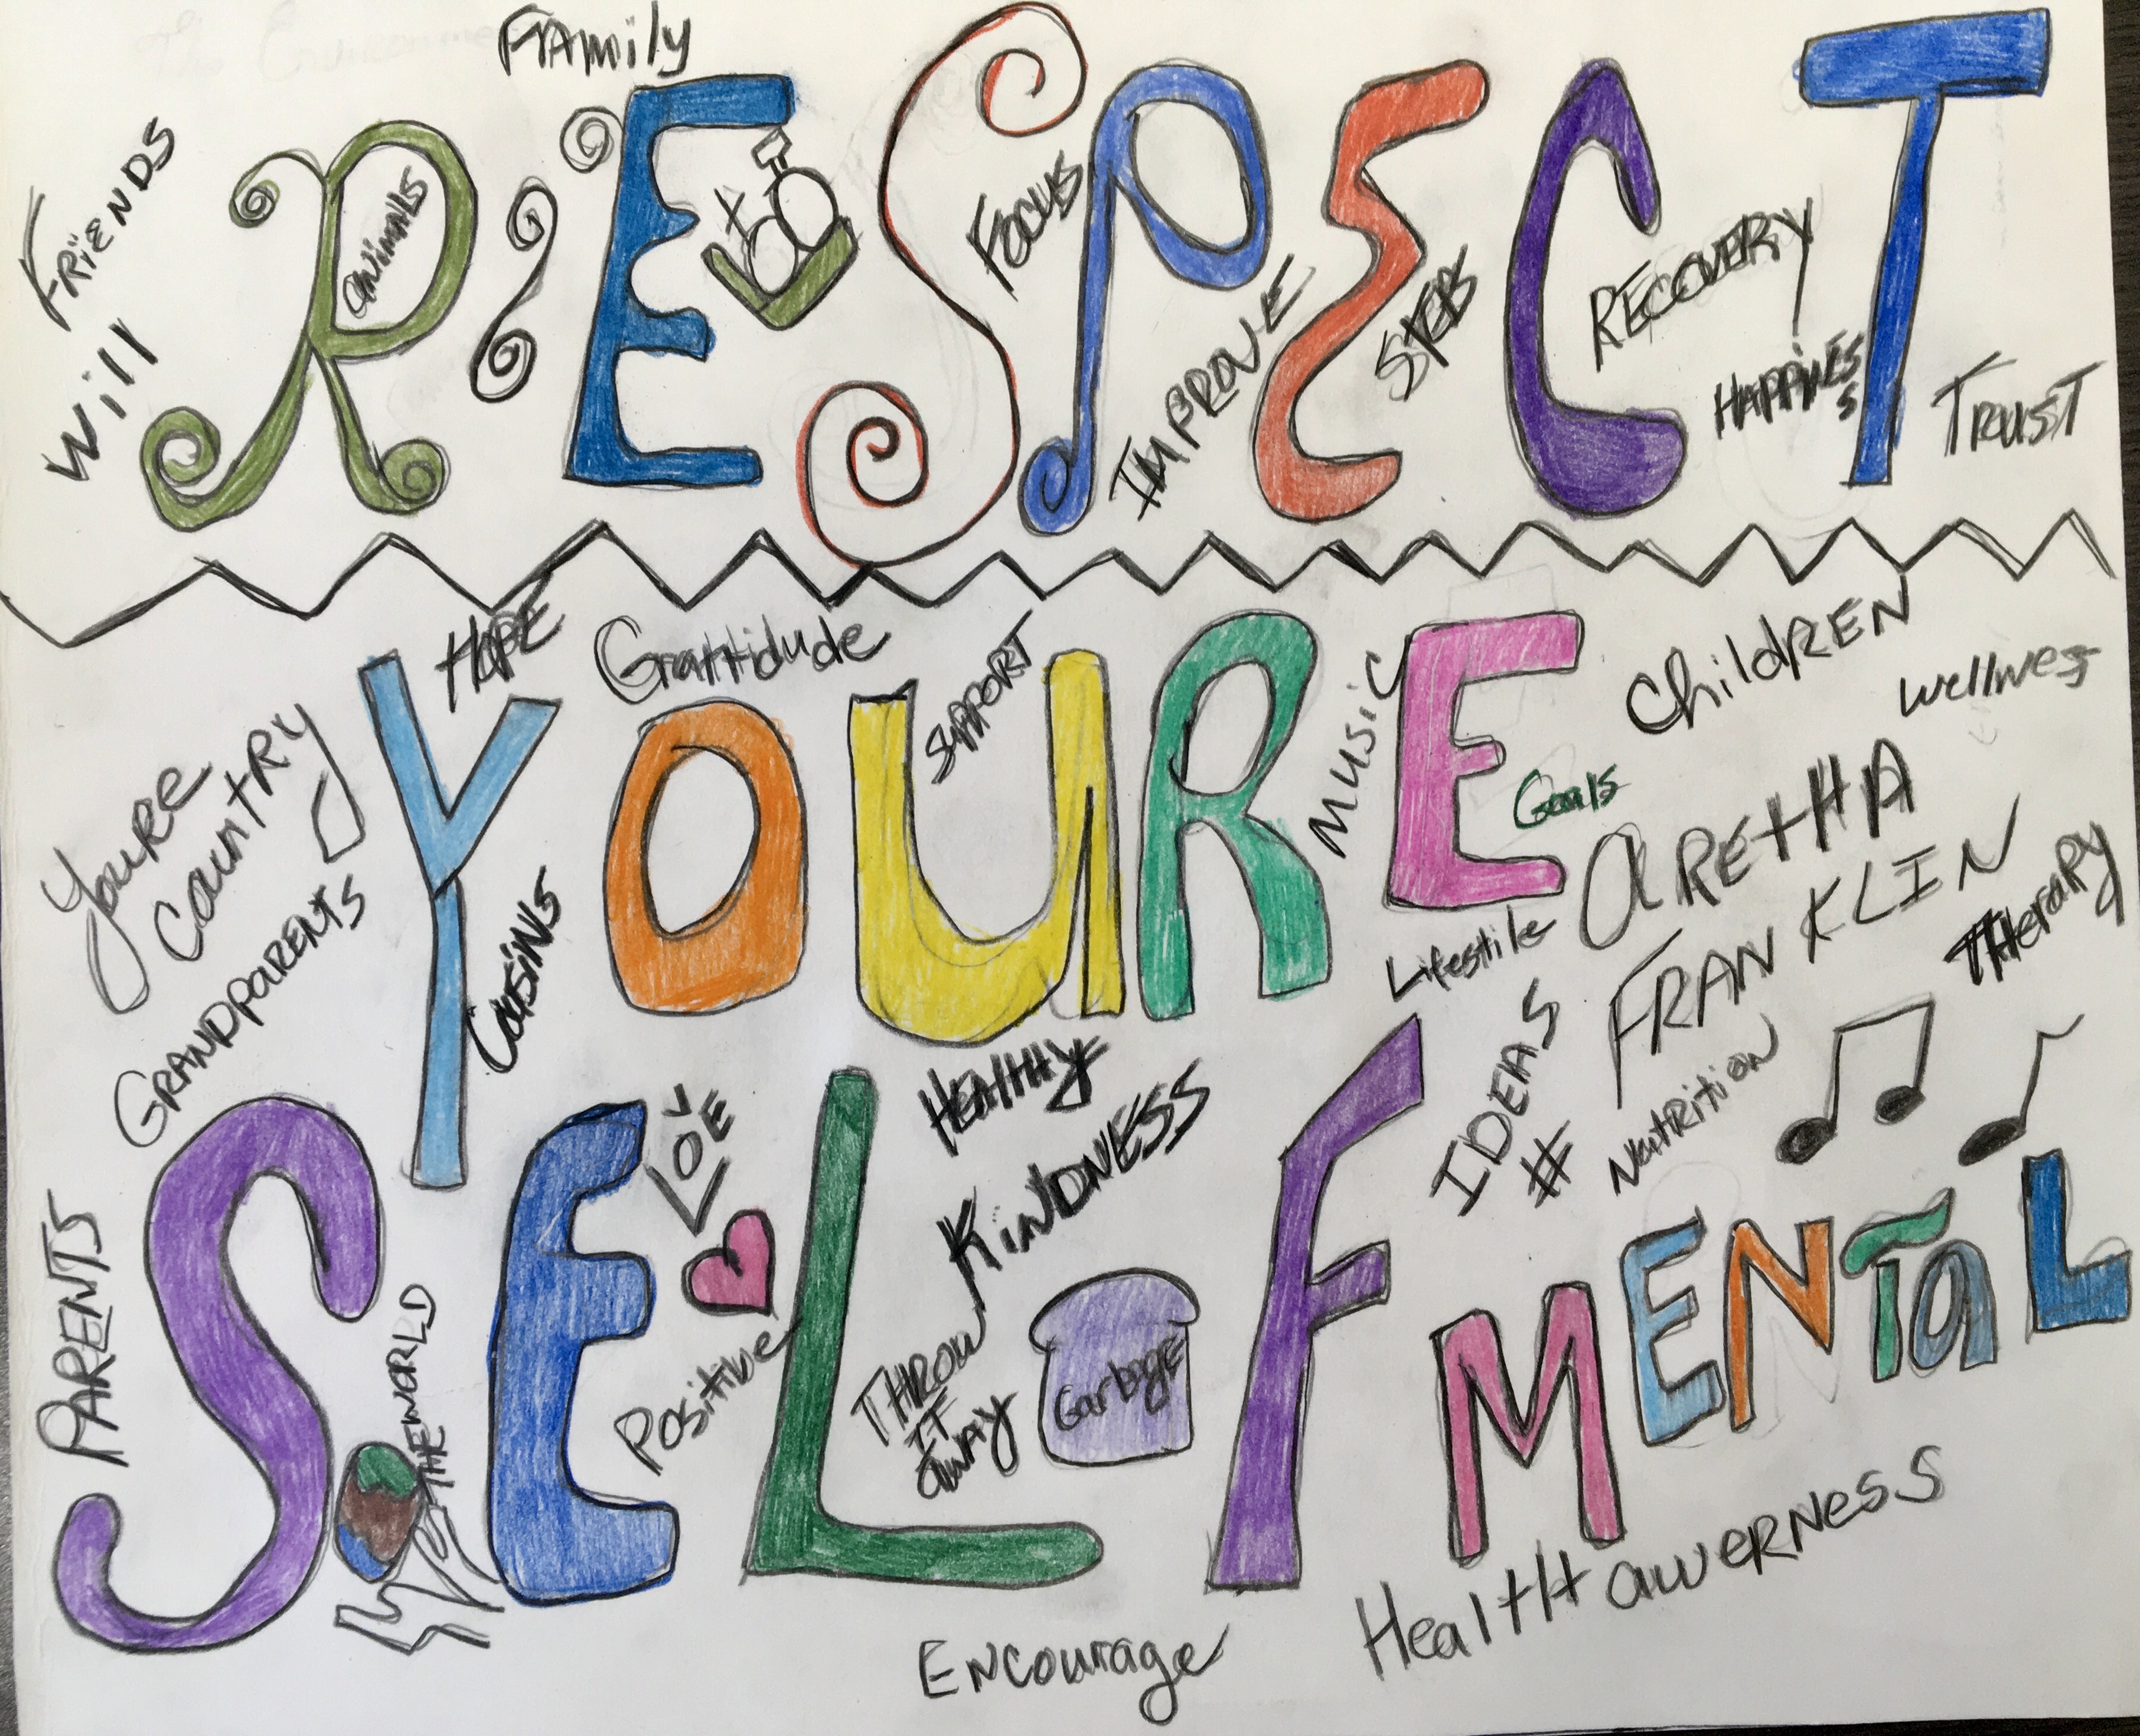 Family
FRiENDS
Will
RESPECT
aNimalls
Focus
IMPROVE
STEPS
RECOVERY
HAPPiNESS
TRUST
HOPE
Grattidude
SUPPORT
YOURE
Music
Goals
ChildREN
Wellness
Youre
Country
GRANDPARENTS
Cousins
aREtHA
FRANKLIN
Lifestile
THeraPy
IDEAS
#
NutRitioN
HEAltHy
KiNDNESS
LOVE
SELF
PARENTS
THE WORLD
Positive
THROW
IT
aWAY
Garbage
MENTaL
HealtH awerNess
ENcourage